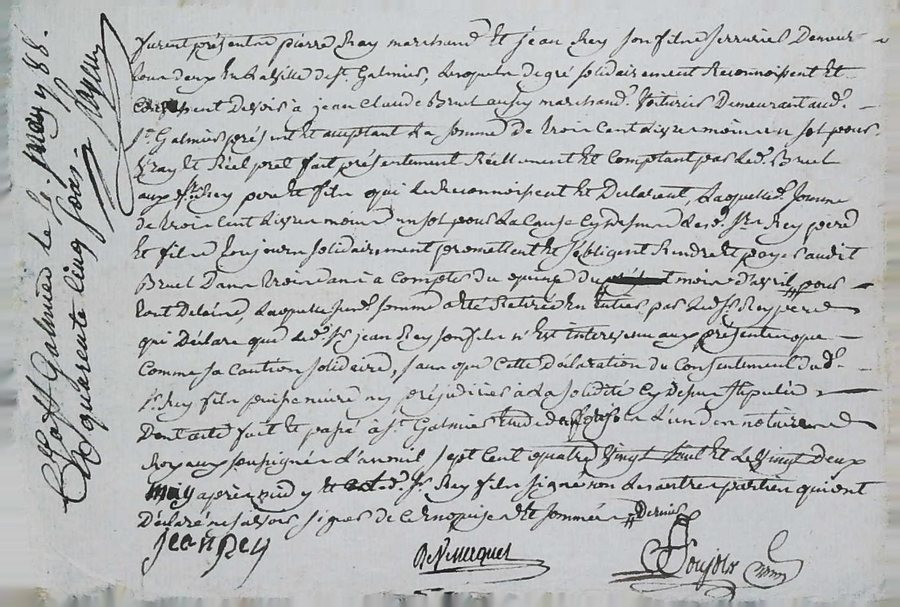 furent présentre pierre Rey marchand Et jean Rey son filre serrurier Demeur
tous deux En la ville de st. Galmier, Lesquelr de gré solidairement Reconnoissent Et
confessent Devoir à jean Claude Bruel aussy marchand. Voiturier Demeurant aud.
st. Galmier présent Et acceptant La somme De troir Cent Livrer moinr un sol pour
vray Et Réel pret fait présentement Réellement Et Comptant par led. Bruel
auxd. srs. Rey pere Et filr qui Le Reconnoissent Et Déclarent, Laquelle d. somme
de troir Cent Livrer moinr un sol pour La Cause Cy dessus Lesd. srs. Rey pere
Et filr Toujourr solidairement promettent Et s'obligent Rendre Et payer audit
Bruel Danr troir anr à Compter du quinze du moir d'avril pour
tout Délair, Laquelle susd. somme a été Retirée En Entier par Led. sr. Rey pere
qui Déclare que Led. sr. jean Rey son filr n'Est intervenu aux présenter que
Comme sa Caution solidaire, sanr que Cette Déclaration du Consentement dud.
sr. Rey filr puisse nuire ny préjudicier à La solidité Cy Dessur stipulée
Dont acte fait Et passé à st. Galmier Etude de L'un der notairer
Royaux soussignér L'an mil sept Cent quatre Vingt huit Et Le Vingt Deux
may aprèr midy Et led. sr. Rey filr signé non Les autrer partier qui ont
Déclaré ne savoir signer de Ce Enquiser Et sommér Dernier
jean Rey
Poujol
Cont. à st. Galmier le may 88.
R. quarente cinq sols